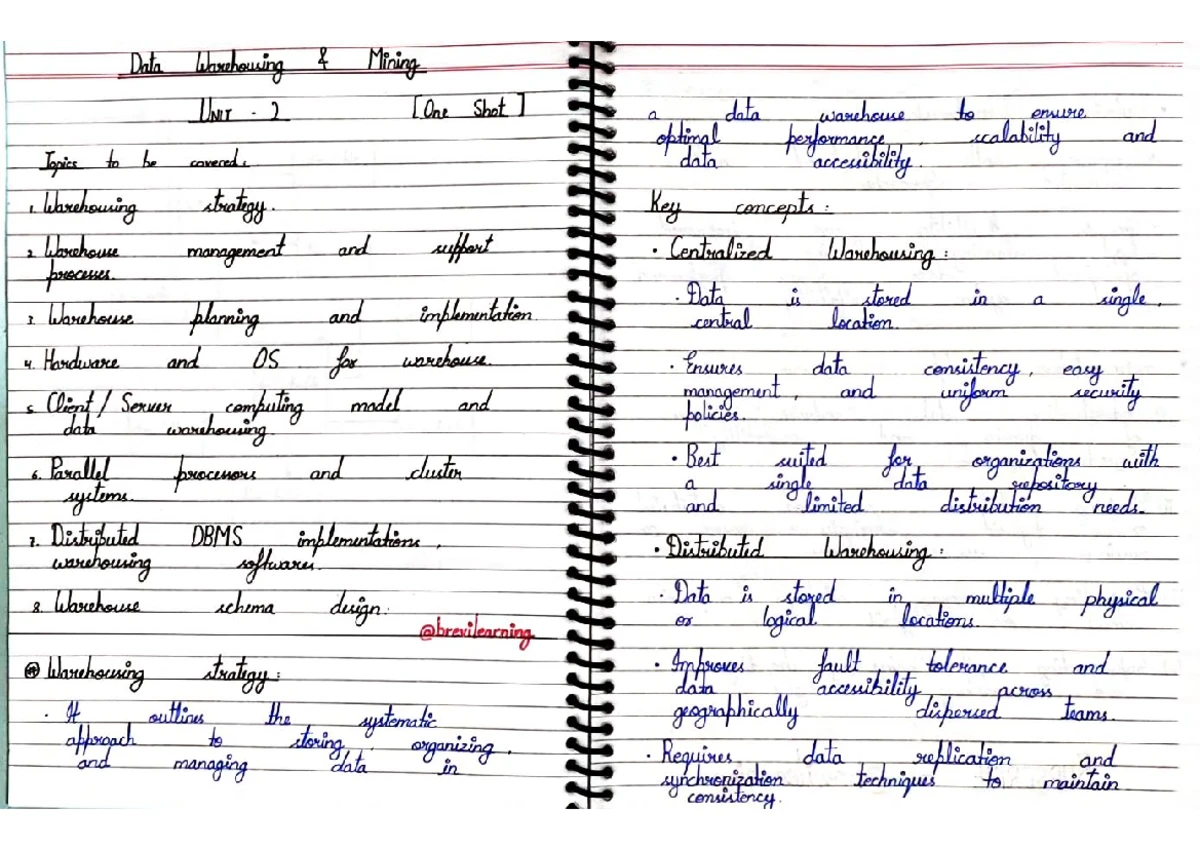 Data Warehousing & Mining
UNIT - 2 [One Shot]
Topics to be covered:
1. Warehousing strategy.
2. Warehouse management and support
processes.
3. Warehouse planning and implementation.
4. Hardware and OS for warehouse.
5. Client / Server computing model and
data warehousing.
6. Parallel processors and cluster
systems.
7. Distributed DBMS implementations,
warehousing softwares.
8. Warehouse schema design.
@brevilearning
Warehousing strategy:
· It outlines the systematic
approach to storing, organizing,
and managing data in
a data warehouse to ensure
optimal performance, scalability and
data accessibility.
Key concepts:
· Centralized Warehousing:
· Data is stored in a single,
central location.
· Ensures data consistency, easy
management, and uniform security
policies.
· Best suited for organizations with
a single data repository
and limited distribution needs.
· Distributed Warehousing:
· Data is stored in multiple physical
or logical locations.
· Improves fault tolerance and
data accessibility across
geographically dispersed teams.
· Requires data replication and
synchronization techniques to maintain
consistency.